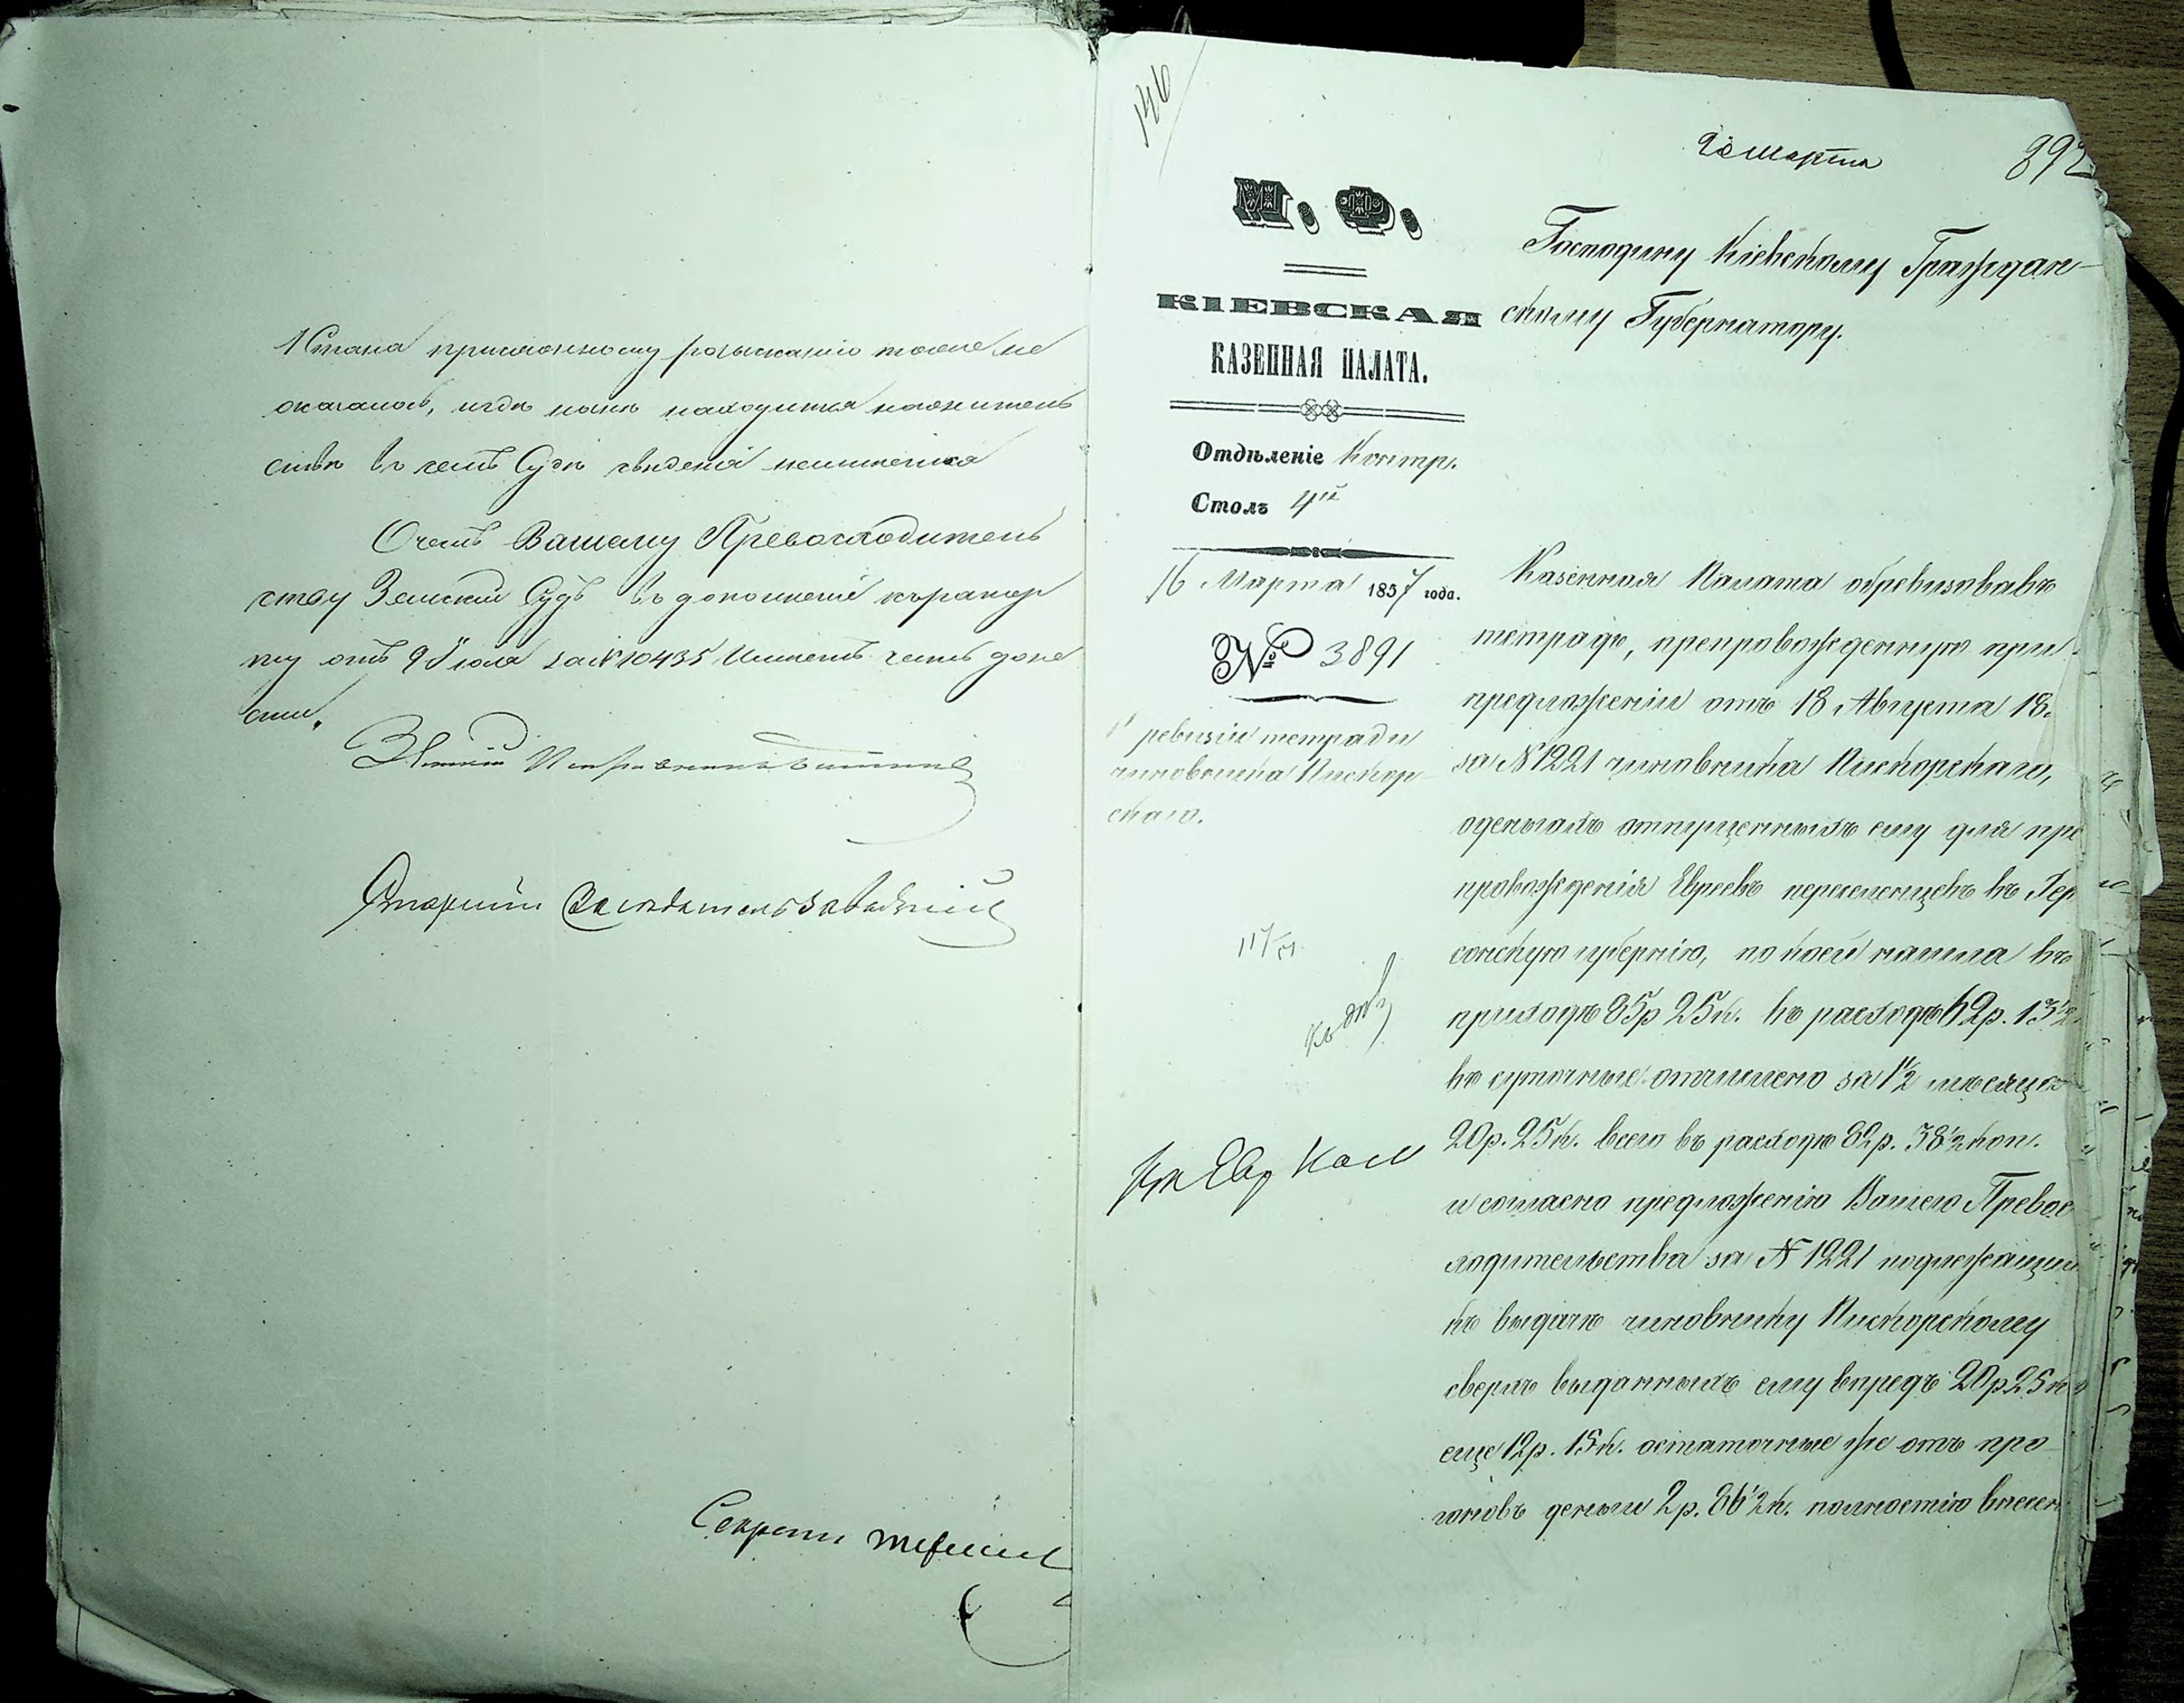 1 Стана приложенному розысканію тоже не
оказалось, и где ныне находится на жительс
стве въ семъ Суде сведенія не имеется
О чемъ Вашему Превосходитель
ству Земскій Судъ въ дополненіе къ рапор
ту отъ 9 Іюля за № 10435 имеетъ честь доне
сти.
Земскій Исправникъ
Старшій Заседатель
Секретарь
146
20 Марта
892
М. Ф.
КІЕВСКАЯ
КАЗЕННАЯ ПАЛАТА.
Отдѣленіе Контр.
Столъ 4й
16 Марта 1857 года.
№ 3891
ревизіи тетради
чиновника Пискор
скаго.
Господину Кіевскому Граждан-
скому Губернатору.
Казенная Палата обревизовавъ
тетрадь, препровожденную при
предложеніи отъ 18 Августа 18
за № 1221 чиновника Пискорскаго,
о деньгахъ отпущенныхъ ему для пре
провожденія Евреевъ переселенцевъ въ Хер
сонскую губернію, по коей нашла въ
приходѣ 85р 25к. въ расходѣ 62р. 13½
въ суточные отчислено за 1½ мѣсяца
20р. 25к. всего въ расходѣ 82р. 38½ коп.
и согласно предложенію Вашего Превос
ходительства за № 1221 подлежащи
къ выдачѣ чиновнику Пискорскому
сверхъ выданныхъ ему впредъ 20р 25к
еще 12р. 15к. остаточные же отъ про
гоновъ деньги 2р. 86½к. полностію внесен